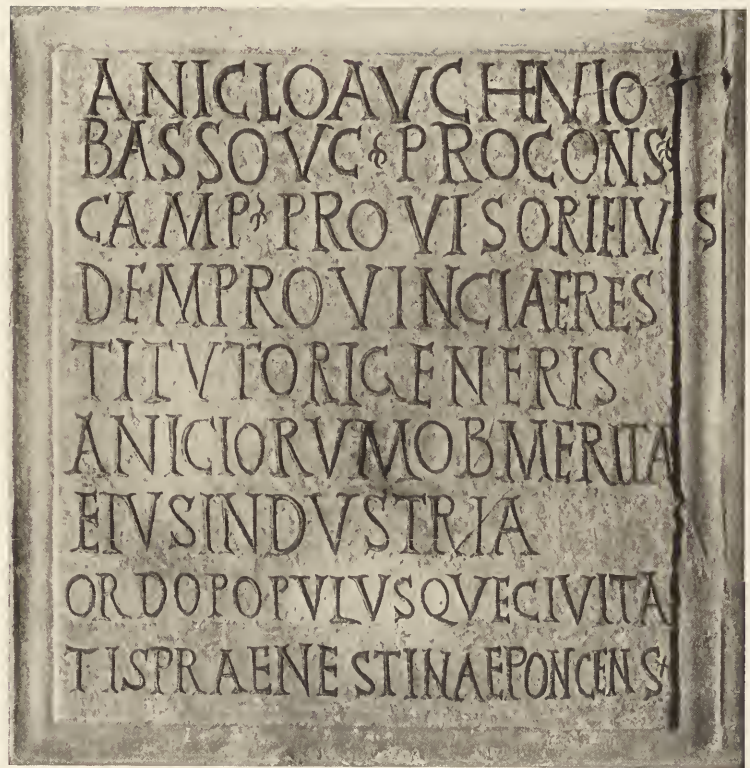 ANICIO AVCHENIO
BASSO VC PROCONS
CAMP PROVISORI EIVS
DEM PROVINCIAE RES
TITVTORI GENERIS
ANICIORVM OB MERITA
EIVS INDVSTRIA
ORDO POPVLVSQVE CIVITA
TIS PRAENESTINAE PON CENS